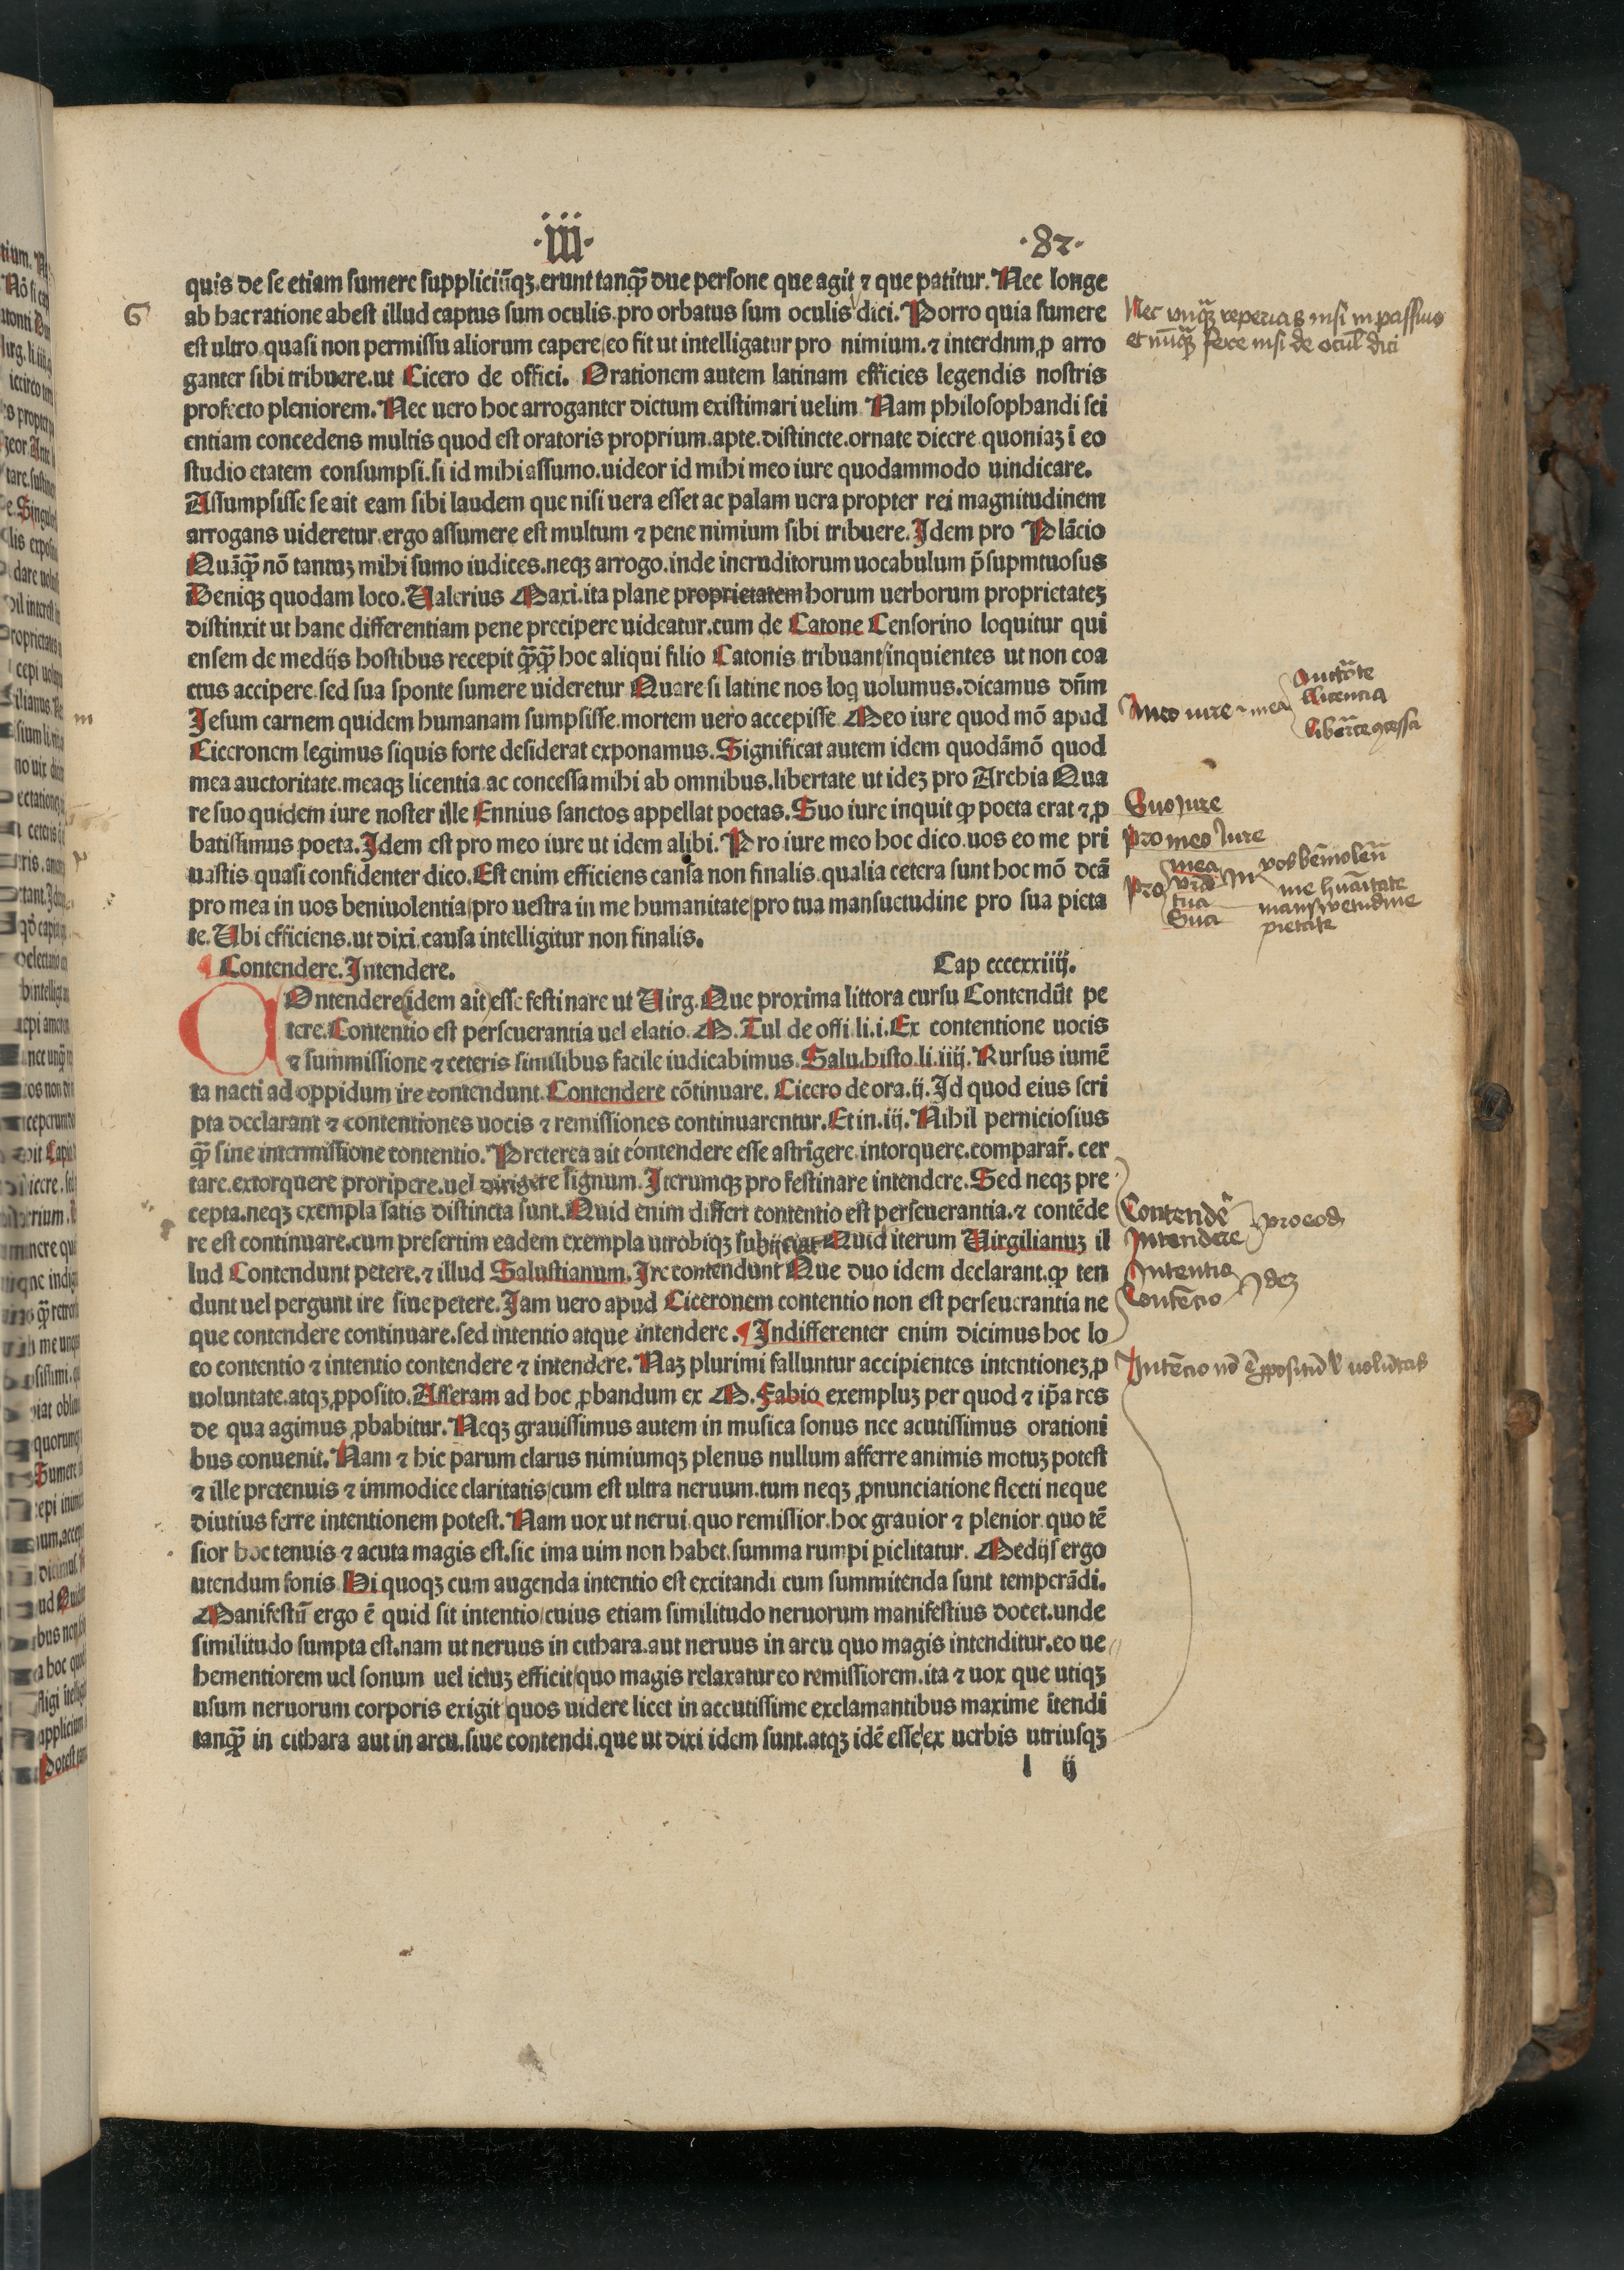 ·iii· ·82·
quis de se etiam sumere suppliciũqꝫ.erunt tanqᷓ due persone que agit ⁊ que patitur. Nec longe
ab hac ratione abest illud captus sum oculis.pro orbatus sum oculis dici. Porro quia sumere
est ultro quasi non permissu aliorum capere/eo fit ut intelligatur pro nimium.⁊ interdnm ꝓ arro
ganter sibi tribuere.ut Cicero de offici. Orationem autem latinam efficies legendis nostris
profecto pleniorem. Nec uero hoc arroganter dictum existimari uelim Nam philosophandi sci
entiam concedens multis quod est oratoris proprium.apte.distincte.ornate dicere quoniaꝫ ĩ eo
studio etatem consumpsi.si id mihi assumo.uideor id mihi meo iure quodammodo uindicare.
Assumpsisse se ait eam sibi laudem que nisi uera esset ac palam uera propter rei magnitudinem
arrogans uideretur.ergo assumere est multum ⁊ pene nimium sibi tribuere. Idem pro Plãcio
Quãqᷓ nõ tantuꝫ mihi sumo iudices.neqꝫ arrogo.inde incruditorum uocabulum p̃supmtuosus
Deniqꝫ quodam loco. Ualerius Maxi.ita plane proprietatem horum uerborum proprietateꝫ
distinxit ut hanc differentiam pene precipere uideatur.cum de Catone Censorino loquitur qui
ensem de medijs hostibus recepit qᷓqᷓ hoc aliqui filio Catonis tribuant/inquientes ut non coa
ctus accipere.sed sua sponte sumere uideretur Quare si latine nos loq uolumus.dicamus dñm
Jesum carnem quidem humanam sumpsisse.mortem uero accepisse Meo iure quod mõ apud
Ciceronem legimus siquis forte desiderat exponamus. Significat autem idem quodãmõ quod
mea auctoritate.meaqꝫ licentia ac concessa mihi ab omnibus.libertate ut ideꝫ pro Archia Qua
re suo quidem iure noster ille Ennius sanctos appellat poetas. Suo iure inquit qꝫ poeta erat ⁊ ꝓ
batissimus poeta. Idem est pro meo iure ut idem alibi. Pro iure meo hoc dico.uos eo me pri
uastis quasi confidenter dico. Est enim efficiens causa non finalis.qualia cetera sunt hoc mõ dcã
pro mea in uos beniuolentia/pro uestra in me humanitate/pro tua mansuetudine pro sua pieta
te. Ubi efficiens.ut dixi causa intelligitur non finalis.
Contendere. Intendere. Cap ccccxxiiij.
COntendere idem ait esse festinare ut Uirg. Que proxima littora cursu Contendũt pe
tere. Contentio est perseuerantia uel elatio. M. Tul de offi li.i. Ex contentione uocis
⁊ summissione ⁊ ceteris similibus facile iudicabimus. Salu.histo.li.iiij. Rursus iumẽ
ta nacti ad oppidum ire contendunt. Contendere cõtinuare. Cicero de ora.ij. Id quod eius scri
pta declarant ⁊ contentiones uocis ⁊ remissiones continuarentur. Et in.iij. Nihil perniciosius
qᷓ sine intermissione contentio. Preterea ait contendere esse astrĩgere intorquere.comparar̃. cer
tare.extorquere proripere.uel dirigere signum. Iterumqꝫ pro festinare intendere. Sed neqꝫ pre
cepta.neqꝫ exempla satis distincta sunt. Quid enim differt contentio est perseuerantia.⁊ contẽde
re est continuare.cum presertim eadem exempla utrobiqꝫ subijciat Quid iterum Uirgilianuꝫ il
lud Contendunt petere.⁊ illud Salustianum. Ire contendunt Que duo idem declarant.qꝫ ten
dunt uel pergunt ire siue petere. Jam uero apud Ciceronem contentio non est perseuerantia ne
que contendere continuare.sed intentio atque intendere. ¶ Indifferenter enim dicimus hoc lo
co contentio ⁊ intentio contendere ⁊ intendere. Naꝫ plurimi falluntur accipientes intentioneꝫ ꝓ
uoluntate.atqꝫ ꝓposito. Afferam ad hoc ꝓbandum ex M. Fabio exempluꝫ per quod ⁊ ip̃a res
de qua agimus ꝓbabitur. Neqꝫ grauissimus autem in musica sonus nec acutissimus orationi
bus conuenit. Nam ⁊ hic parum clarus nimiumqꝫ plenus nullum afferre animis motuꝫ potest
⁊ ille pretenuis ⁊ immodice claritatis/cum est ultra neruum.tum neqꝫ ꝓnunciatione flecti neque
diutius ferre intentionem potest. Nam uox ut nerui quo remissior.hoc grauior ⁊ plenior quo tẽ
sior hoc tenuis ⁊ acuta magis est.sic ima uim non habet.summa rumpi ꝑiclitatur. Medijs ergo
utendum sonis Hi quoqꝫ cum augenda intentio est excitandi cum summitenda sunt temperãdi.
Manifestũ ergo ẽ quid sit intentio/cuius etiam similitudo neruorum manifestius docet.unde
similitudo sumpta est.nam ut neruus in cithara.aut neruus in arcu quo magis intenditur.eo ue
hementiorem uel sonum uel ictuꝫ efficit/quo magis relaxatur eo remissiorem.ita ⁊ uox que utiqꝫ
usum neruorum corporis exigit quos uidere licet in accutissime exclamantibus maxime ĩtendi
tanqᷓ in cithara aut in arcu.siue contendi.que ut dixi idem sunt.atqꝫ idẽ esse ex uerbis utriusqꝫ
l ij
G
Nec unqᷓ reperias nisi in passiuo
et nũqᷓ fere nisi de ocul̃ dici
Meo iure · mea
Auctõte
licentia
Suo Jure
pro meo Jure
pro mea vr̃a tua Sua In
vos beniuolẽ
me huãitate
mansuetudine
pietate
Contendẽ
Intendere pro eod
Intentio
Contẽcio Idẽ
Intẽcio nõ ẽ ꝓpositũ uolũtas